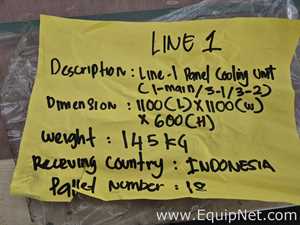 LINE 1
Description : Line-1 Panel Cooling Unit
(1-main/3-1/3-2)
Dimension : 1100(L) X 1100(W)
X 600(H)
Weight : 145 KG
Receving Country : INDONESIA
Pallet Number : 18
www.EquipNet.com